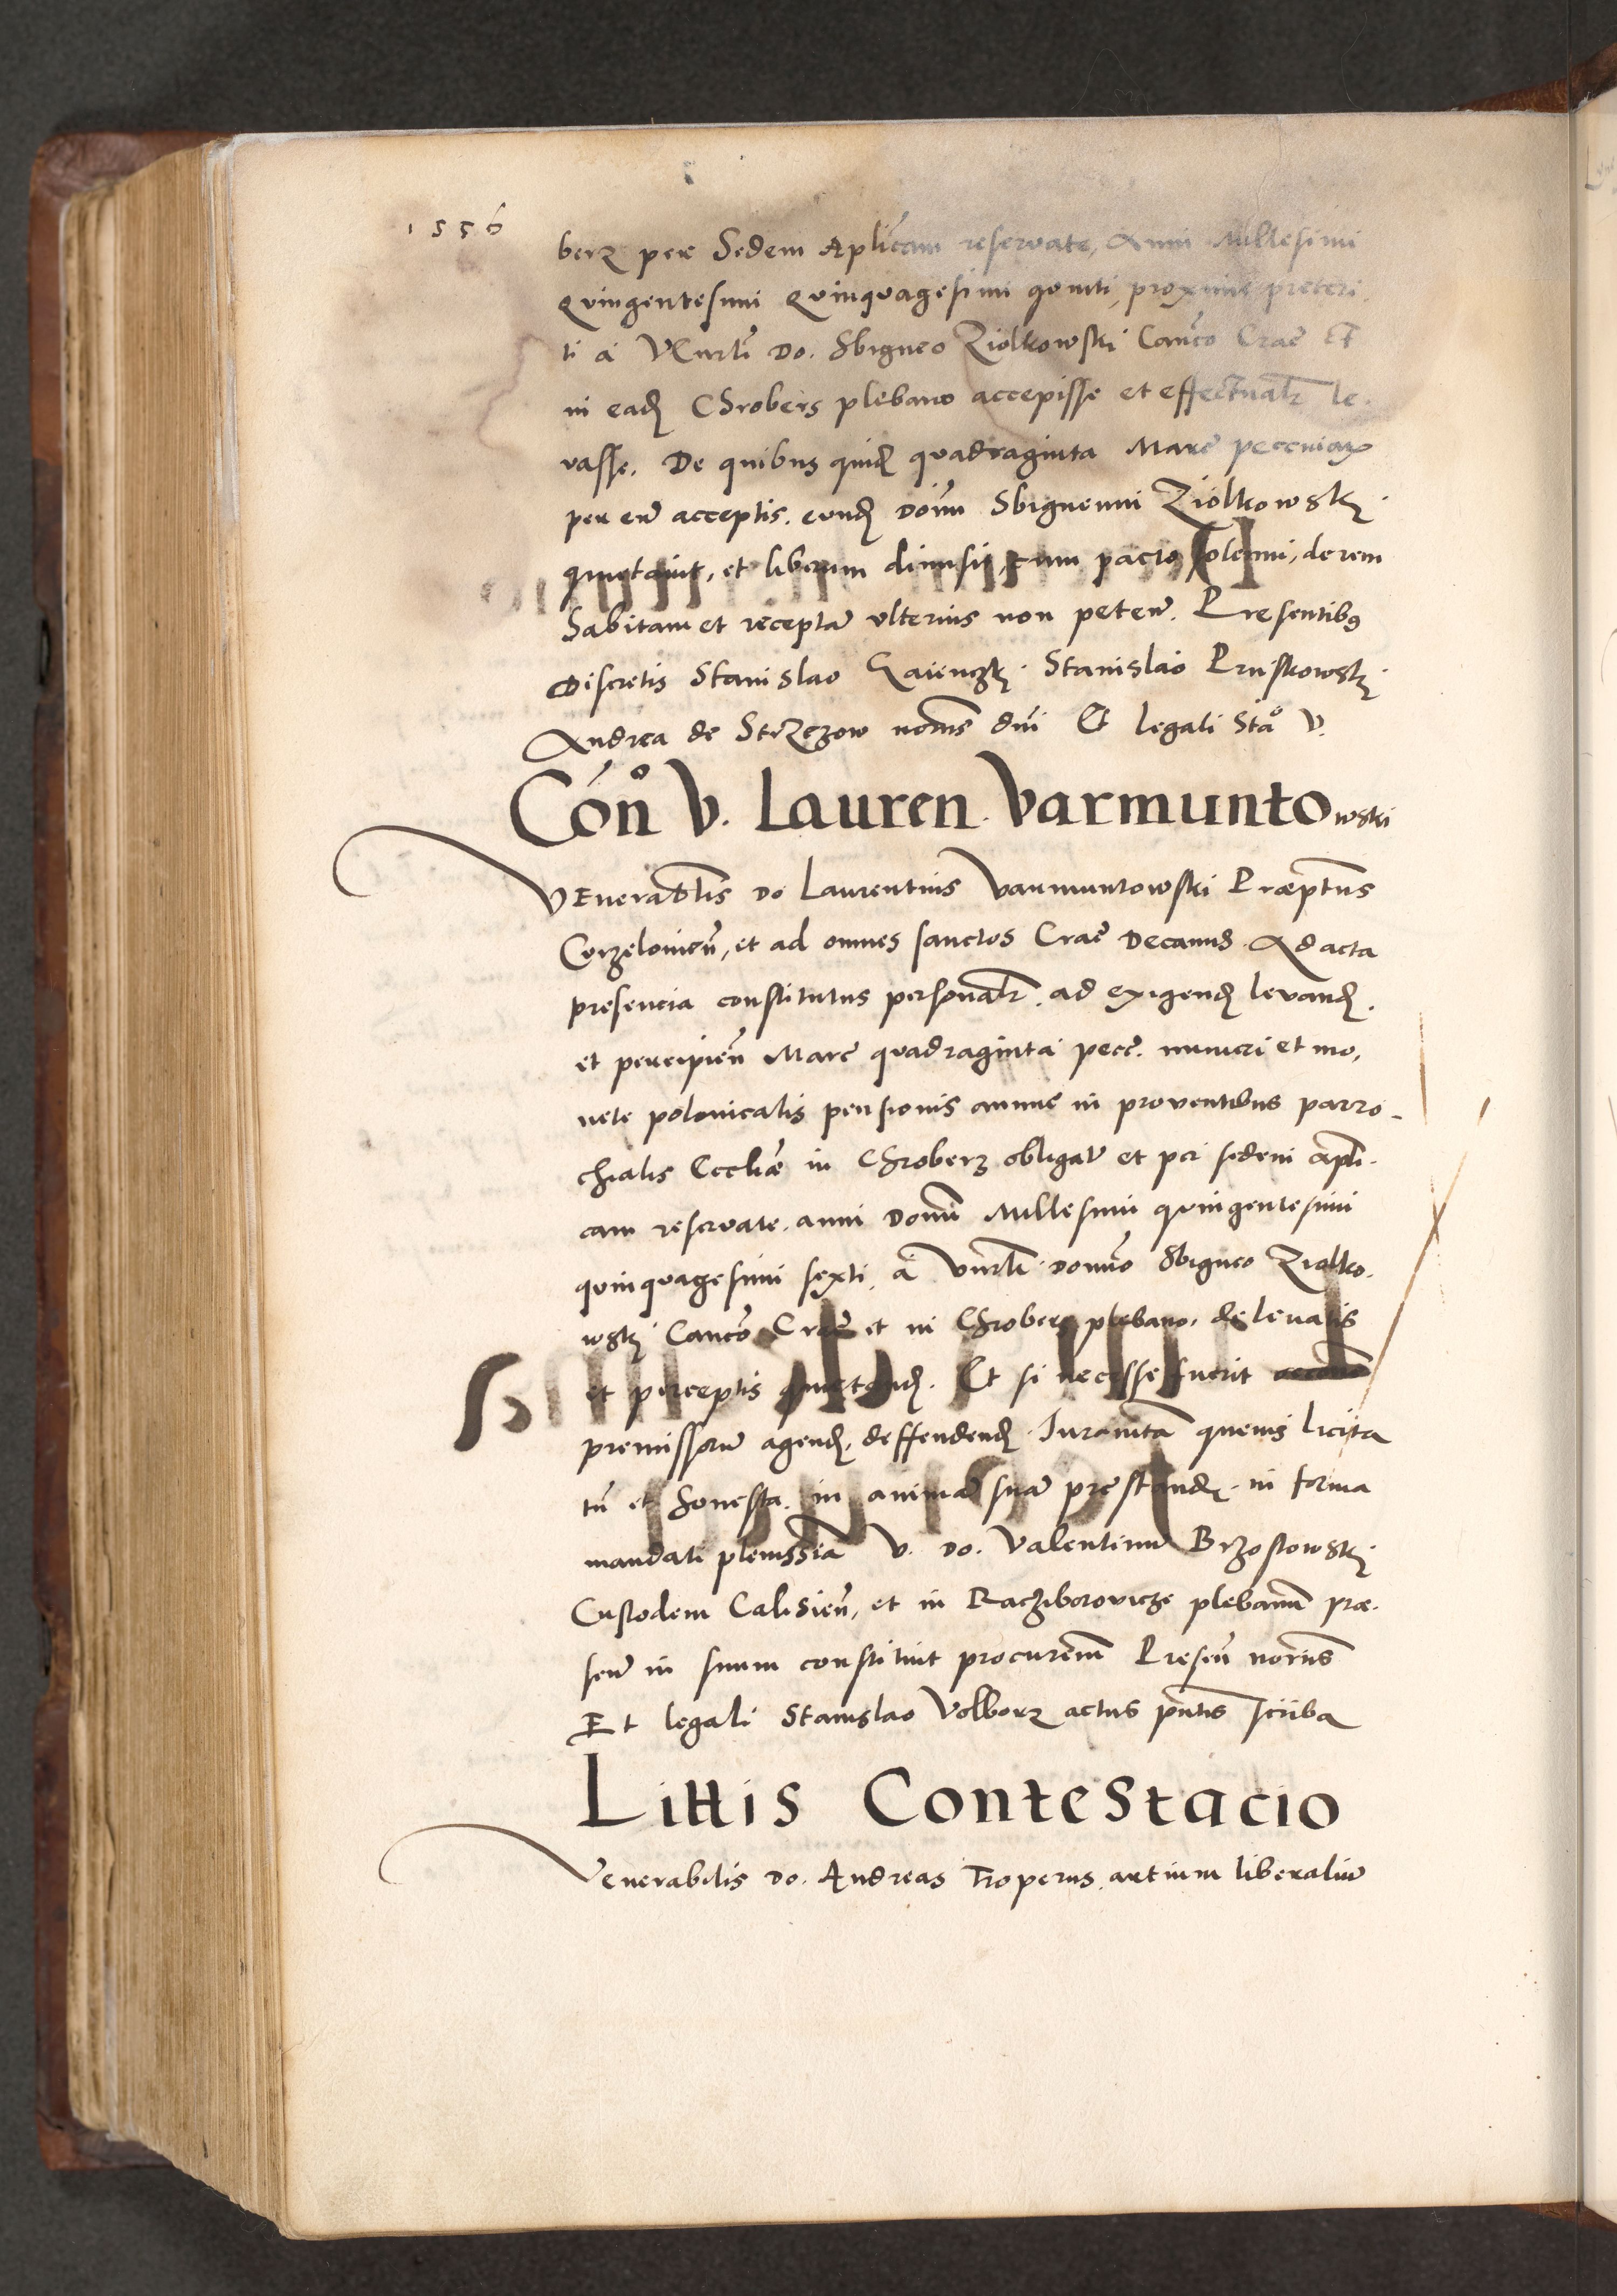 1556
berz per Sedem Aplicam reservate, Anni Millesimi
Quingentesimi Quinquagesimi quinti, proxime preteri
ti a Venrli Do. Sbigneo Ziolkowski Canco Crac Et
in ead Chrobers plebano accepisse et effectualr le
vasse. De quibus quid quadraginta Marc pecuniar
per eum acceptis. eund Dom Sbigneum Ziolkowsk
quietavit, et liberum dimisit, cum pacto solenni, de rem
habitam et recepta ulterius non peten. Presentibus
Discretis Stanislao Stanislao Pruskowsk
Andrea de Strzezow notis dni Et legali Sta V.
Con V. Lauren. Varmuntowski
VEnerablis Do Laurentius Varmuntowski Praeptus
Curzelovien, et ad omnes sanctos Crac Decanus. Ad acta
presencia constitutus personalr. ad exigend levand.
et percipien Marc quadraginta pecc. numeri et mo,
nete polonicalis pensionis annue in proventibus parro-
chialis Eccliae in Chroberz obligat et per sedem apli.
cam reservate. anni Domi Millesimi quingentesimi
quinquagesimi sexti, a Venrli. Domno Sbigneo Ziolko.
wsk Canco Crac et in Chroberz plebano, de levatis
et perceptis quietand. Et si necesse fuerit
premissorum agend, deffendend. Juramta quevis licita
tn et honesta. in anima sua prestand. in forma
mandati plenissima V. Do. Valentinum Brzostowsk
Custodem Calisien, et in Racziborovicze plebanum prae.
sen in suum constituit procurem Presen notriis
Et legali Stanislao Volborz actus pntis scriba
Littis Contestacio
Venerabilis Do. Andreas Troperus artium liberalium